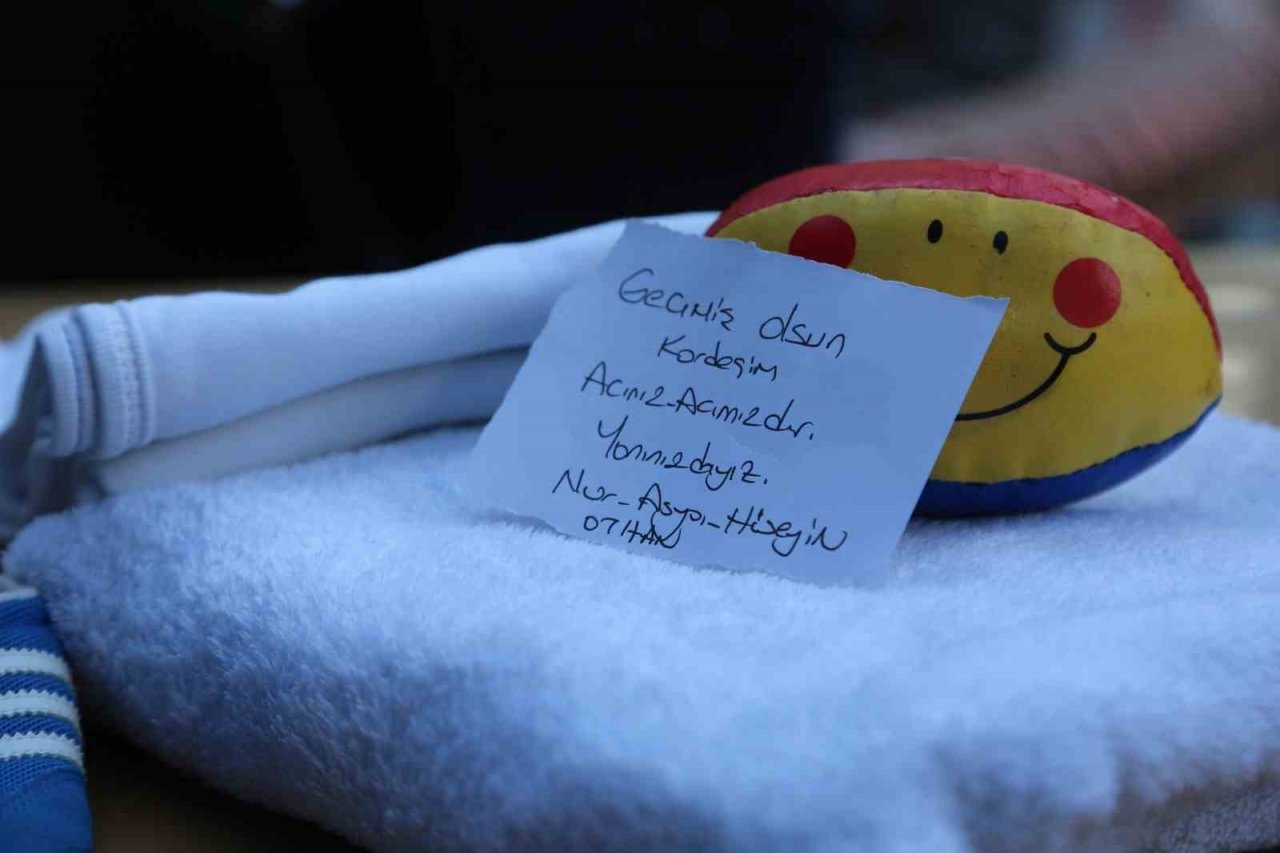 Geçmiş olsun
Kardeşim
Acınız-Acımızdır.
Yanınızdayız.
Nur-Asya-Hüseyin